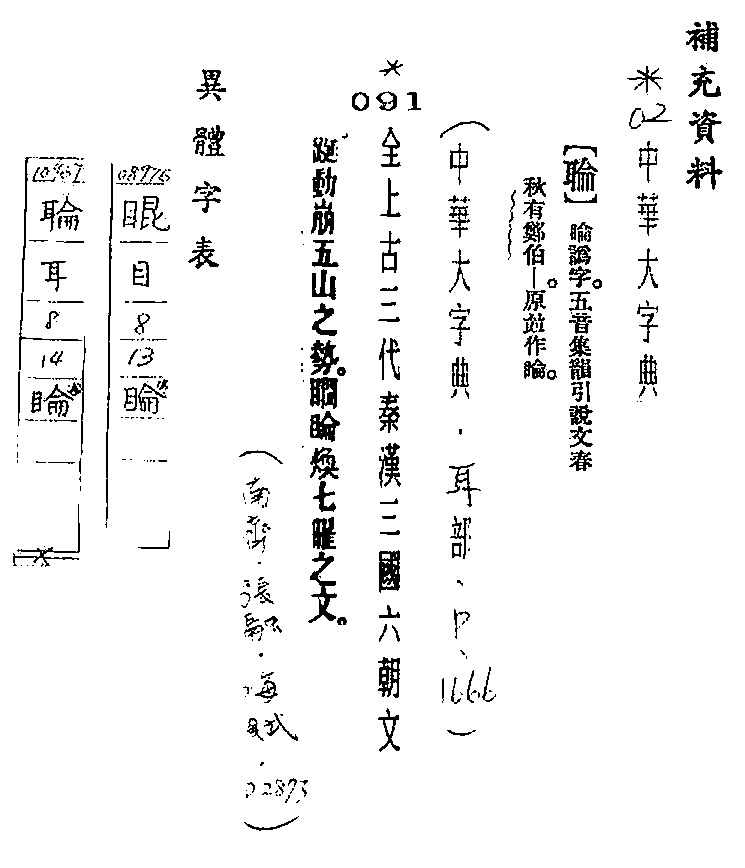 補充資料
*02 中華大字典
【聨】睔譌字。五音集韻引說文春
秋有鄭伯｜原竝作睔。
（中華大字典．耳部、P、1666）
*
091
全上古三代秦漢三國六朝文
動崩五山之勢。瞷睔煥七曜之文。
（南齊．張融．海賦．02873）
異體字表
睴
目
8
13
睔
耳
8
14
睔